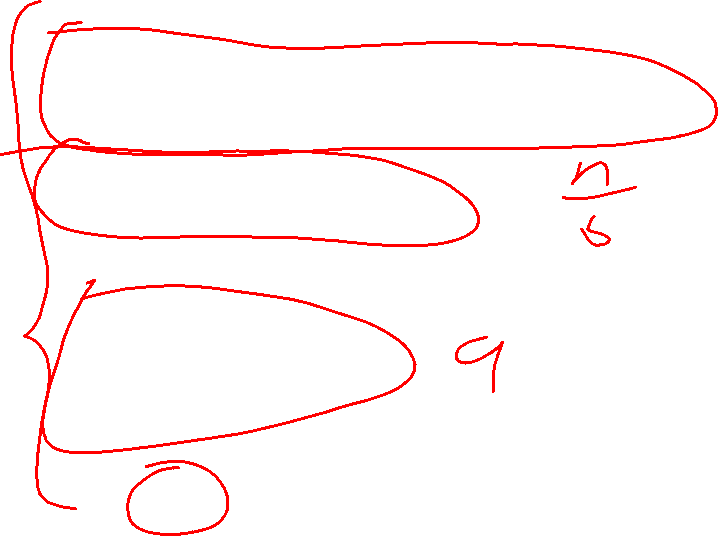 n/6
9